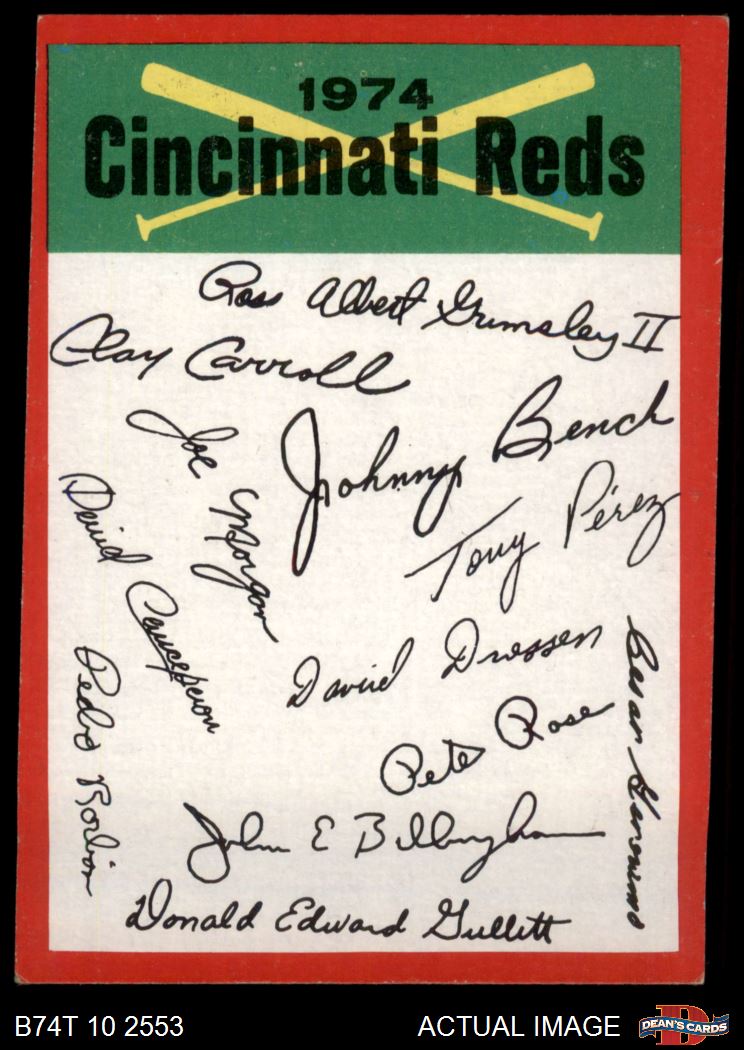 1974
Cincinnati Reds
Ross Albert Grimsley II
Clay Carroll
Johnny Bench
Joe Morgan
Tony Pérez
David Concepcion
David Driessen
Cesar Geronimo
Pedro Borbon
Pete Rose
John E Billingham
Donald Edward Gullett
B74T 10 2553
ACTUAL IMAGE
D
DEAN'S CARDS